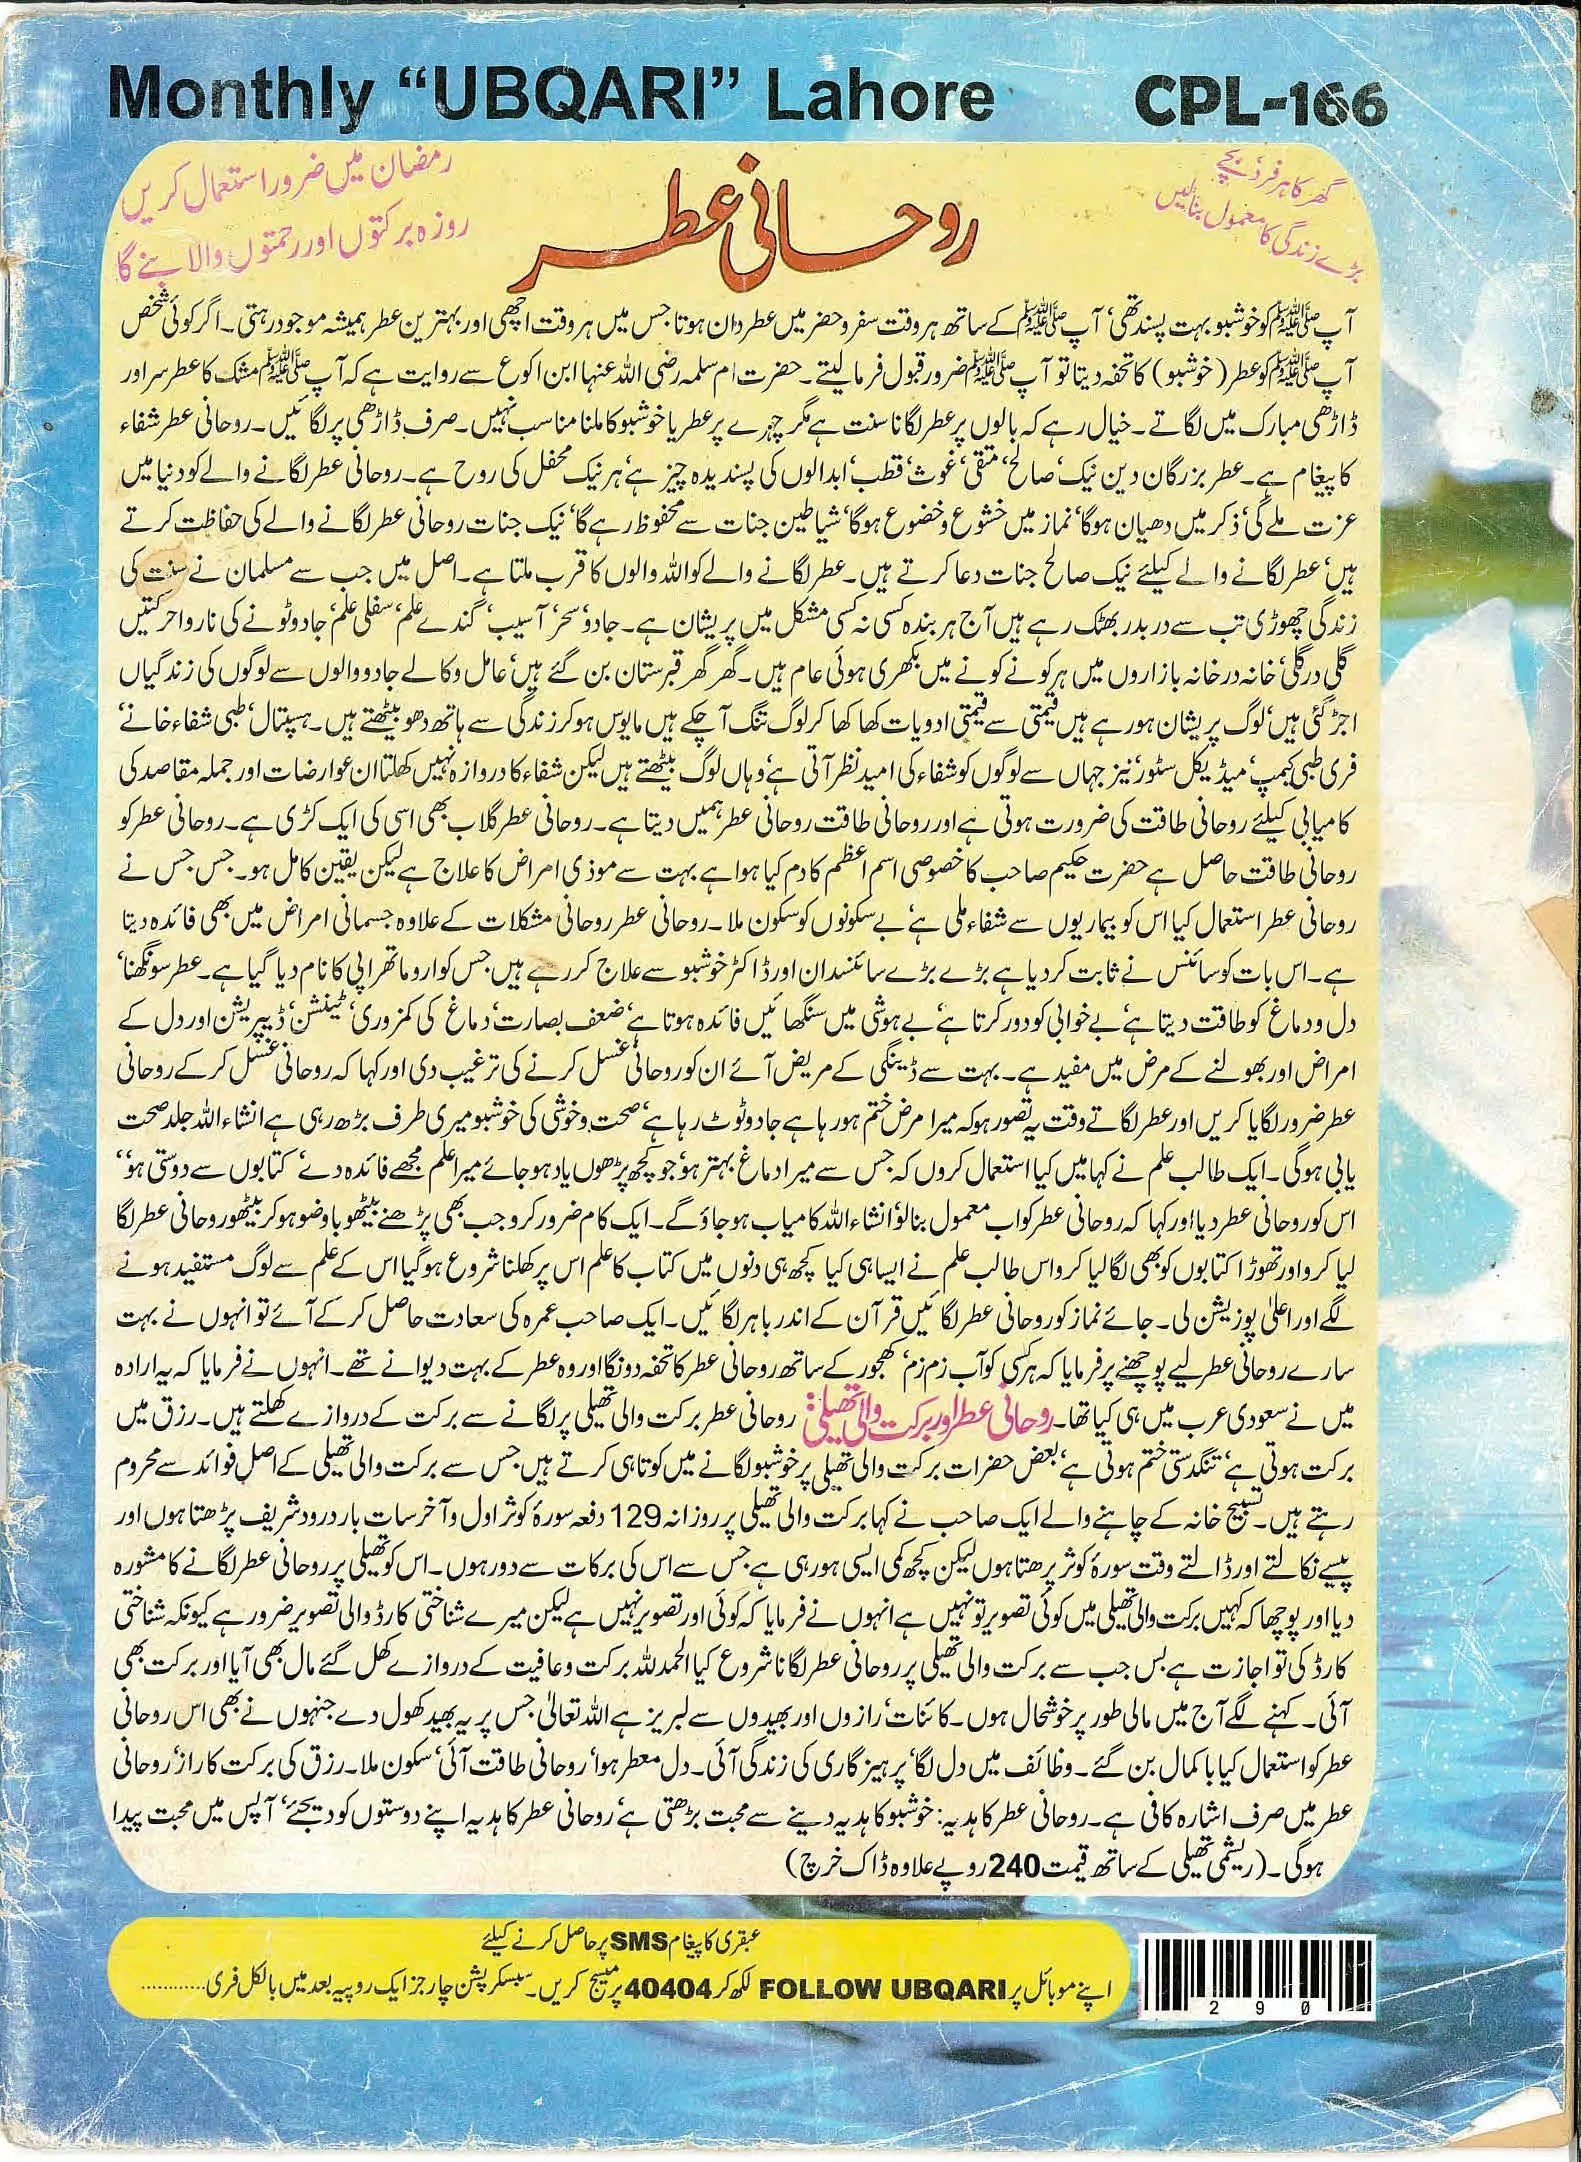 Monthly “UBQARI” Lahore CPL-166
گھر کا ہر فرد‘ بچے
بڑے زندگی کا معمول بنالیں
روحانی عطر
رمضان میں ضرور استعمال کریں
روزہ برکتوں اور رحمتوں والا بنے گا
آپ ﷺ کو خوشبو بہت پسند تھی‘ آپ ﷺ کے ساتھ ہر وقت سفر و حضر میں عطردان ہوتا جس میں ہر وقت اچھی اور بہترین عطر ہمیشہ موجود رہتی۔ اگر کوئی شخص
آپ ﷺ کو عطر (خوشبو) کا تحفہ دیتا تو آپ ﷺ ضرور قبول فرمالیتے۔ حضرت ام سلمہ رضی اللہ عنہا ابن اکوع سے روایت ہے کہ آپ ﷺ مشک کا عطر سر اور
ڈاڑھی مبارک میں لگاتے۔ خیال رہے کہ بالوں پر عطر لگانا سنت ہے مگر چہرے پر عطر یا خوشبو کا ملنا مناسب نہیں۔ صرف ڈاڑھی پر لگائیں۔ روحانی عطر شفاء
کا پیغام ہے۔ عطر بزرگان دین نیک‘ صالح‘ متقی‘ غوث‘ قطب‘ ابدالوں کی پسندیدہ چیز ہے‘ ہر نیک محفل کی روح ہے۔ روحانی عطر لگانے والے کو دنیا میں
عزت ملے گی‘ ذکر میں دھیان ہوگا‘ نماز میں خشوع و خضوع ہوگا‘ شیاطین جنات سے محفوظ رہے گا‘ نیک جنات روحانی عطر لگانے والے کی حفاظت کرتے
ہیں‘ عطر لگانے والے کیلئے نیک صالح جنات دعا کرتے ہیں۔ عطر لگانے والے کو اللہ والوں کا قرب ملتا ہے۔ اصل میں جب سے مسلمان نے سنت کی
زندگی چھوڑی تب سے در بدر بھٹک رہے ہیں آج ہر بندہ کسی نہ کسی مشکل میں پریشان ہے۔ جادو‘ سحر‘ آسیب‘ گندے علم‘ سفلی علم‘ جادو ٹونے کی ناروا حرکتیں
گلی در گلی‘ خانہ در خانہ بازاروں میں ہر کونے کونے میں بکھری ہوئی عام ہیں۔ گھر گھر قبرستان بن گئے ہیں‘ عامل و کالے جادو والوں سے لوگوں کی زندگیاں
اجڑ گئی ہیں‘ لوگ پریشان ہو رہے ہیں قیمتی سے قیمتی ادویات کھا کھا کر لوگ تنگ آچکے ہیں مایوس ہوکر زندگی سے ہاتھ دھو بیٹھتے ہیں۔ ہسپتال‘ طبی شفاء خانے‘
فری طبی کیمپ‘ میڈیکل سٹور‘ نیز جہاں سے لوگوں کو شفاء کی امید نظر آتی ہے‘ وہاں لوگ بیٹھتے ہیں لیکن شفاء کا دروازہ نہیں کھلتا ان عوارضات اور جملہ مقاصد کی
کامیابی کیلئے روحانی طاقت کی ضرورت ہوتی ہے اور روحانی طاقت روحانی عطر ہمیں دیتا ہے۔ روحانی عطر گلاب بھی اسی کی ایک کڑی ہے۔ روحانی عطر کو
روحانی طاقت حاصل ہے حضرت حکیم صاحب کا خصوصی اسم اعظم کا دم کیا ہوا ہے بہت سے موذی امراض کا علاج ہے لیکن یقین کامل ہو۔ جس جس نے
روحانی عطر استعمال کیا اس کو بیماریوں سے شفاء ملی ہے‘ بے سکونوں کو سکون ملا۔ روحانی عطر روحانی مشکلات کے علاوہ جسمانی امراض میں بھی فائدہ دیتا
ہے۔ اس بات کو سائنس نے ثابت کردیا ہے بڑے بڑے سائنسدان اور ڈاکٹر خوشبو سے علاج کر رہے ہیں جس کو اروماتھراپی کا نام دیا گیا ہے۔ عطر سونگھنا‘
دل و دماغ کو طاقت دیتا ہے‘ بے خوابی کو دور کرتا ہے‘ بے ہوشی میں سنگھائیں فائدہ ہوتا ہے‘ ضعف بصارت‘ دماغ کی کمزوری‘ ٹینشن‘ ڈیپریشن اور دل کے
امراض اور بھولنے کے مرض میں مفید ہے۔ بہت سے ڈینگی کے مریض آئے ان کو روحانی غسل کرنے کی ترغیب دی اور کہا کہ روحانی غسل کر کے روحانی
عطر ضرور لگایا کریں اور عطر لگاتے وقت یہ تصور ہو کہ میرا مرض ختم ہو رہا ہے جادو ٹوٹ رہا ہے‘ صحت و خوشی کی خوشبو میری طرف بڑھ رہی ہے انشاء اللہ جلد صحت
یابی ہوگی۔ ایک طالب علم نے کہا میں کیا استعمال کروں کہ جس سے میرا دماغ بہتر ہو‘ جو کچھ پڑھوں یاد ہو جائے میرا علم مجھے فائدہ دے‘ کتابوں سے دوستی ہو‘‘
اس کو روحانی عطر دیا اور کہا کہ روحانی عطر کو اب معمول بنالو‘ انشاء اللہ کامیاب ہو جاؤ گے۔ ایک کام ضرور کرو جب بھی پڑھنے بیٹھو باوضو ہو کر بیٹھو روحانی عطر لگا
لیا کرو اور تھوڑا کتابوں کو بھی لگا لیا کرو اس طالب علم نے ایسا ہی کیا کچھ ہی دنوں میں کتاب کا علم اس پر کھلنا شروع ہو گیا اس کے علم سے لوگ مستفید ہونے
لگے اور اعلیٰ پوزیشن لی۔ جائے نماز کو روحانی عطر لگائیں قرآن کے اندر باہر لگائیں۔ ایک صاحب عمرہ کی سعادت حاصل کر کے آئے تو انہوں نے بہت
سارے روحانی عطر لیے پوچھنے پر فرمایا کہ ہر کسی کو آب زم زم‘ کھجور کے ساتھ روحانی عطر کا تحفہ دونگا اور وہ عطر کے بہت دیوانے تھے۔ انہوں نے فرمایا کہ یہ ارادہ
میں نے سعودی عرب میں ہی کیا تھا۔ روحانی عطر اور برکت والی تھیلی: روحانی عطر برکت والی تھیلی پر لگانے سے برکت کے دروازے کھلتے ہیں۔ رزق میں
برکت ہوتی ہے‘ تنگدستی ختم ہوتی ہے‘ بعض حضرات برکت والی تھیلی پر خوشبو لگانے میں کوتاہی کرتے ہیں جس سے برکت والی تھیلی کے اصل فوائد سے محروم
رہتے ہیں۔ تسبیح خانہ کے چاہنے والے ایک صاحب نے کہا برکت والی تھیلی پر روزانہ 129 دفعہ سورۂ کوثر اول و آخر سات بار درود شریف پڑھتا ہوں اور
پیسے نکالتے اور ڈالتے وقت سورۂ کوثر پرھتا ہوں لیکن کچھ کمی ایسی ہو رہی ہے جس سے اس کی برکات سے دور ہوں۔ اس کو تھیلی پر روحانی عطر لگانے کا مشورہ
دیا اور پوچھا کہ کہیں برکت والی تھیلی میں کوئی تصویر تو نہیں ہے انہوں نے فرمایا کہ کوئی اور تصویر نہیں ہے لیکن میرے شناختی کارڈ والی تصویر ضرور ہے کیونکہ شناختی
کارڈ کی تو اجازت ہے بس جب سے برکت والی تھیلی پر روحانی عطر لگانا شروع کیا الحمدللہ برکت و عافیت کے دروازے کھل گئے مال بھی آیا اور برکت بھی
آئی۔ کہنے لگے آج میں مالی طور پر خوشحال ہوں۔ کائنات‘ رازوں اور بھیدوں سے لبریز ہے اللہ تعالیٰ جس پر یہ بھید کھول دے جنہوں نے بھی اس روحانی
عطر کو استعمال کیا باکمال بن گئے۔ وظائف میں دل لگا‘ پرہیزگاری کی زندگی آئی۔ دل معطر ہوا‘ روحانی طاقت آئی‘ سکون ملا۔ رزق کی برکت کا راز‘ روحانی
عطر میں صرف اشارہ کافی ہے۔ روحانی عطر کا ہدیہ: خوشبو کا ہدیہ دینے سے محبت بڑھتی ہے‘ روحانی عطر کا ہدیہ اپنے دوستوں کو دیجئے‘ آپس میں محبت پیدا
ہوگی۔ (ریشمی تھیلی کے ساتھ قیمت 240 روپے علاوہ ڈاک خرچ)
عبقری کا پیغام SMS پر حاصل کرنے کیلئے
اپنے موبائل پر FOLLOW UBQARI لکھ کر 40404 پر میسج کریں۔ سبسکرپشن چارجز ایک روپیہ بعد میں بالکل فری............
290